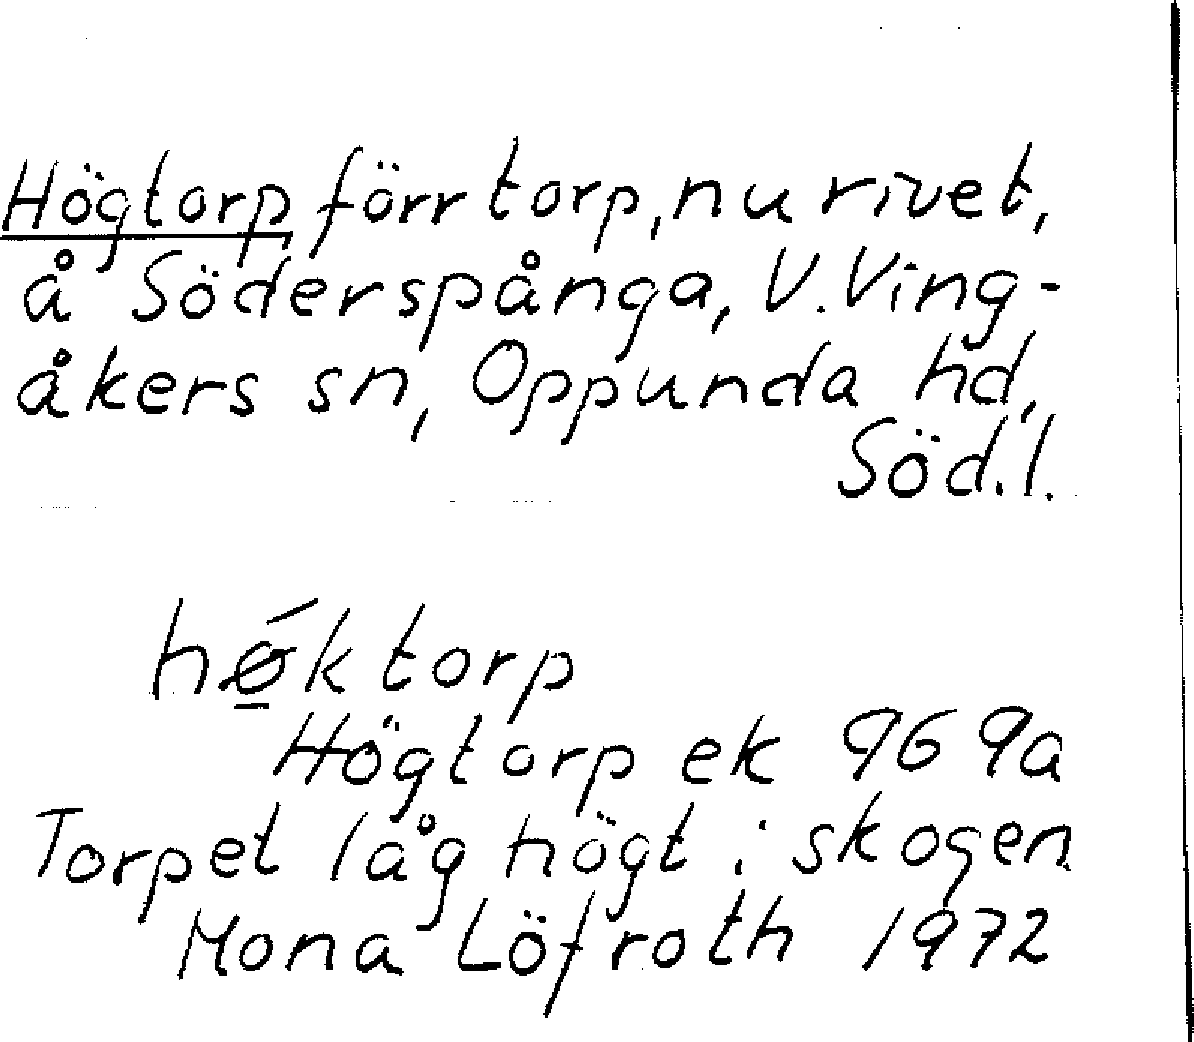 Högtorp, förr torp, nu rivet,
å Söderspånga, V. Ving-
åkers sn, Oppunda hd,
Söd.l.
hǿ̲ktorp
Högtorp ek 969a
Torpet låg högt i skogen
Mona Löfroth 1972